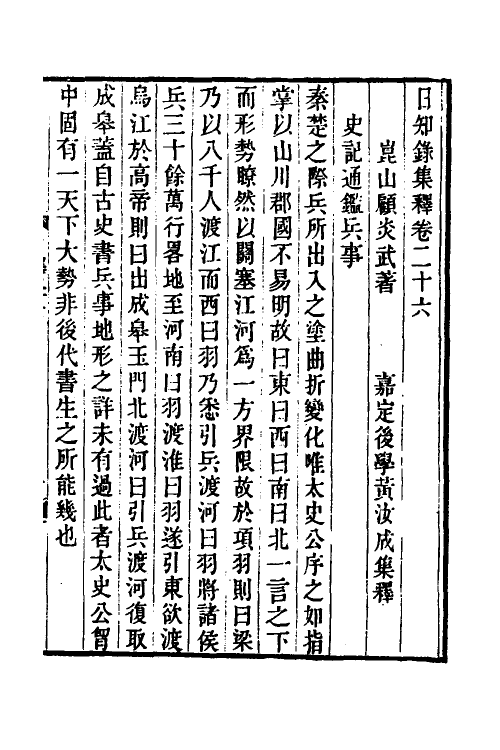 日知錄集釋卷二十六
崑山顧炎武著　嘉定後學黃汝成集釋
史記通鑑兵事
秦楚之際兵所出入之塗曲折變化唯太史公序之如指
掌以山川郡國不易明故曰東曰西曰南曰北一言之下
而形勢瞭然以關塞江河爲一方界限故於項羽則曰梁
乃以八千人渡江而西曰羽乃悉引兵渡河曰羽將諸侯
兵三十餘萬行畧地至河南曰羽渡淮曰羽遂引東欲渡
烏江於高帝則曰出成皋玉門北渡河曰引兵渡河復取
成皋蓋自古史書兵事地形之詳未有過此者太史公胷
中固有一天下大勢非後代書生之所能幾也